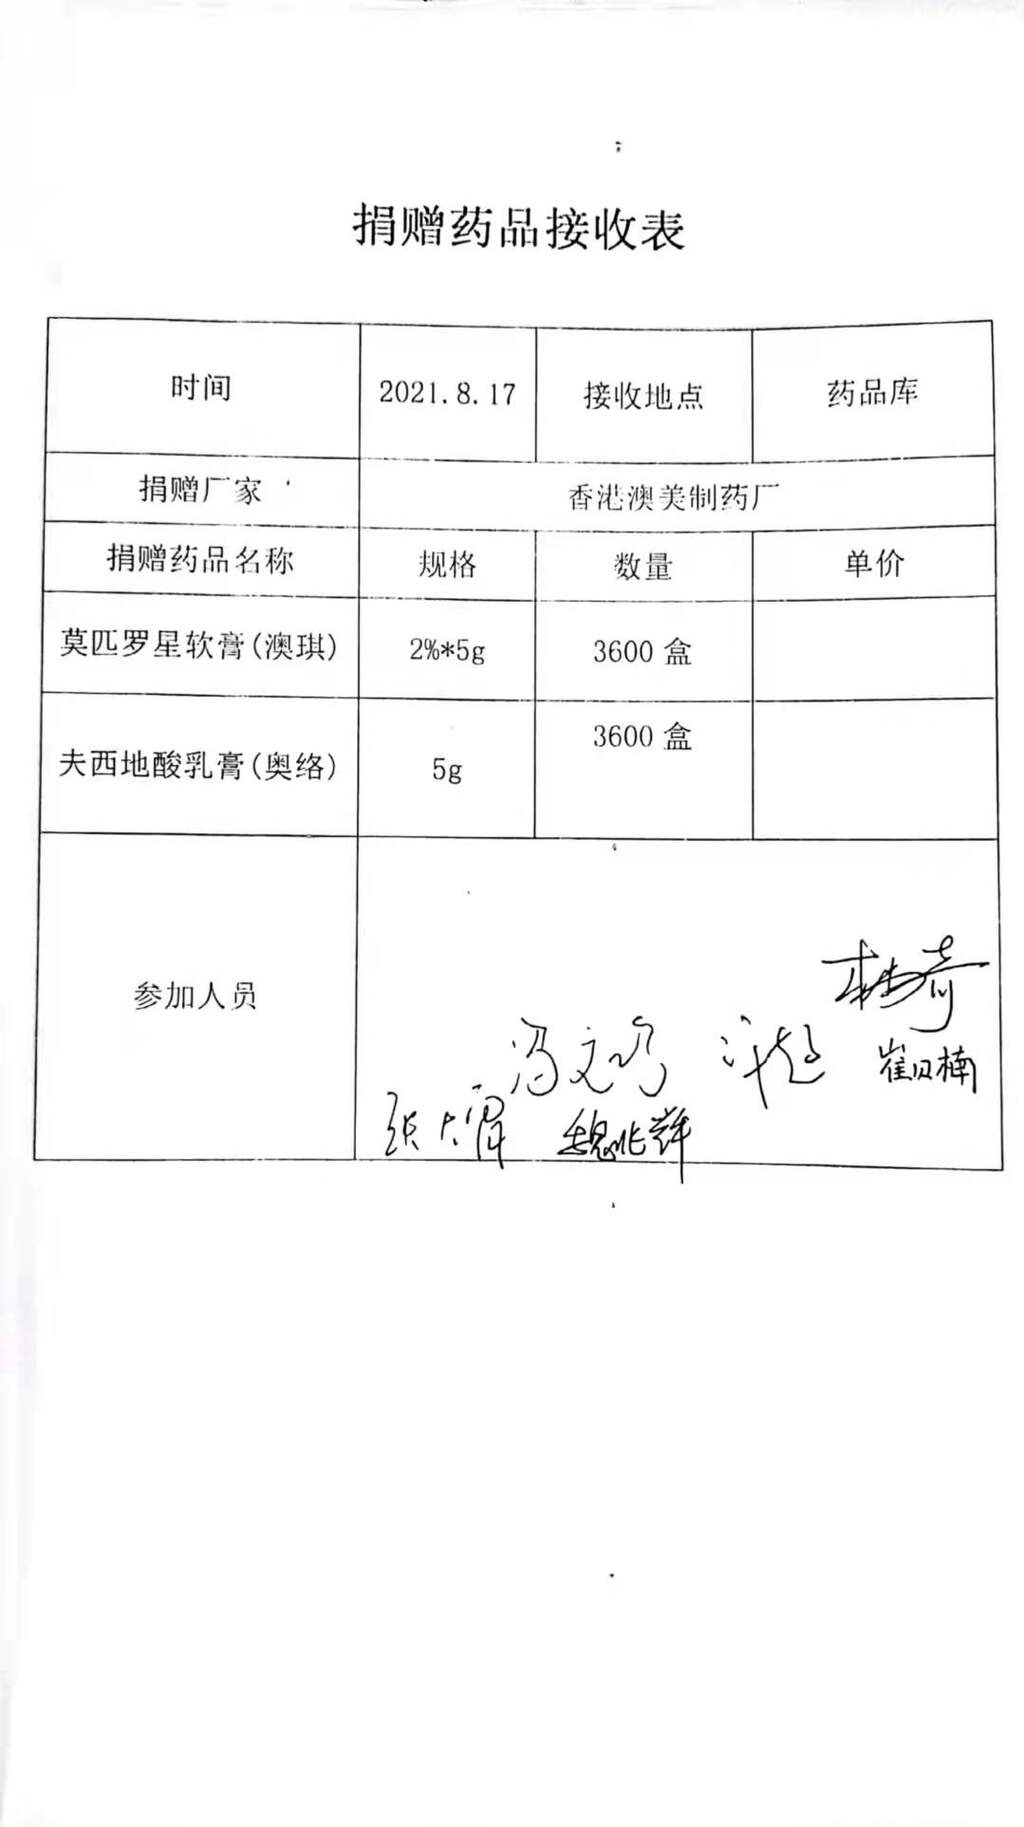 捐赠药品接收表
时间 2021.8.17 接收地点 药品库
捐赠厂家 香港澳美制药厂
捐赠药品名称 规格 数量 单价
莫匹罗星软膏(澳琪) 2%*5g 3600 盒
夫西地酸乳膏(奥络) 5g 3600 盒
参加人员
魏兆辉